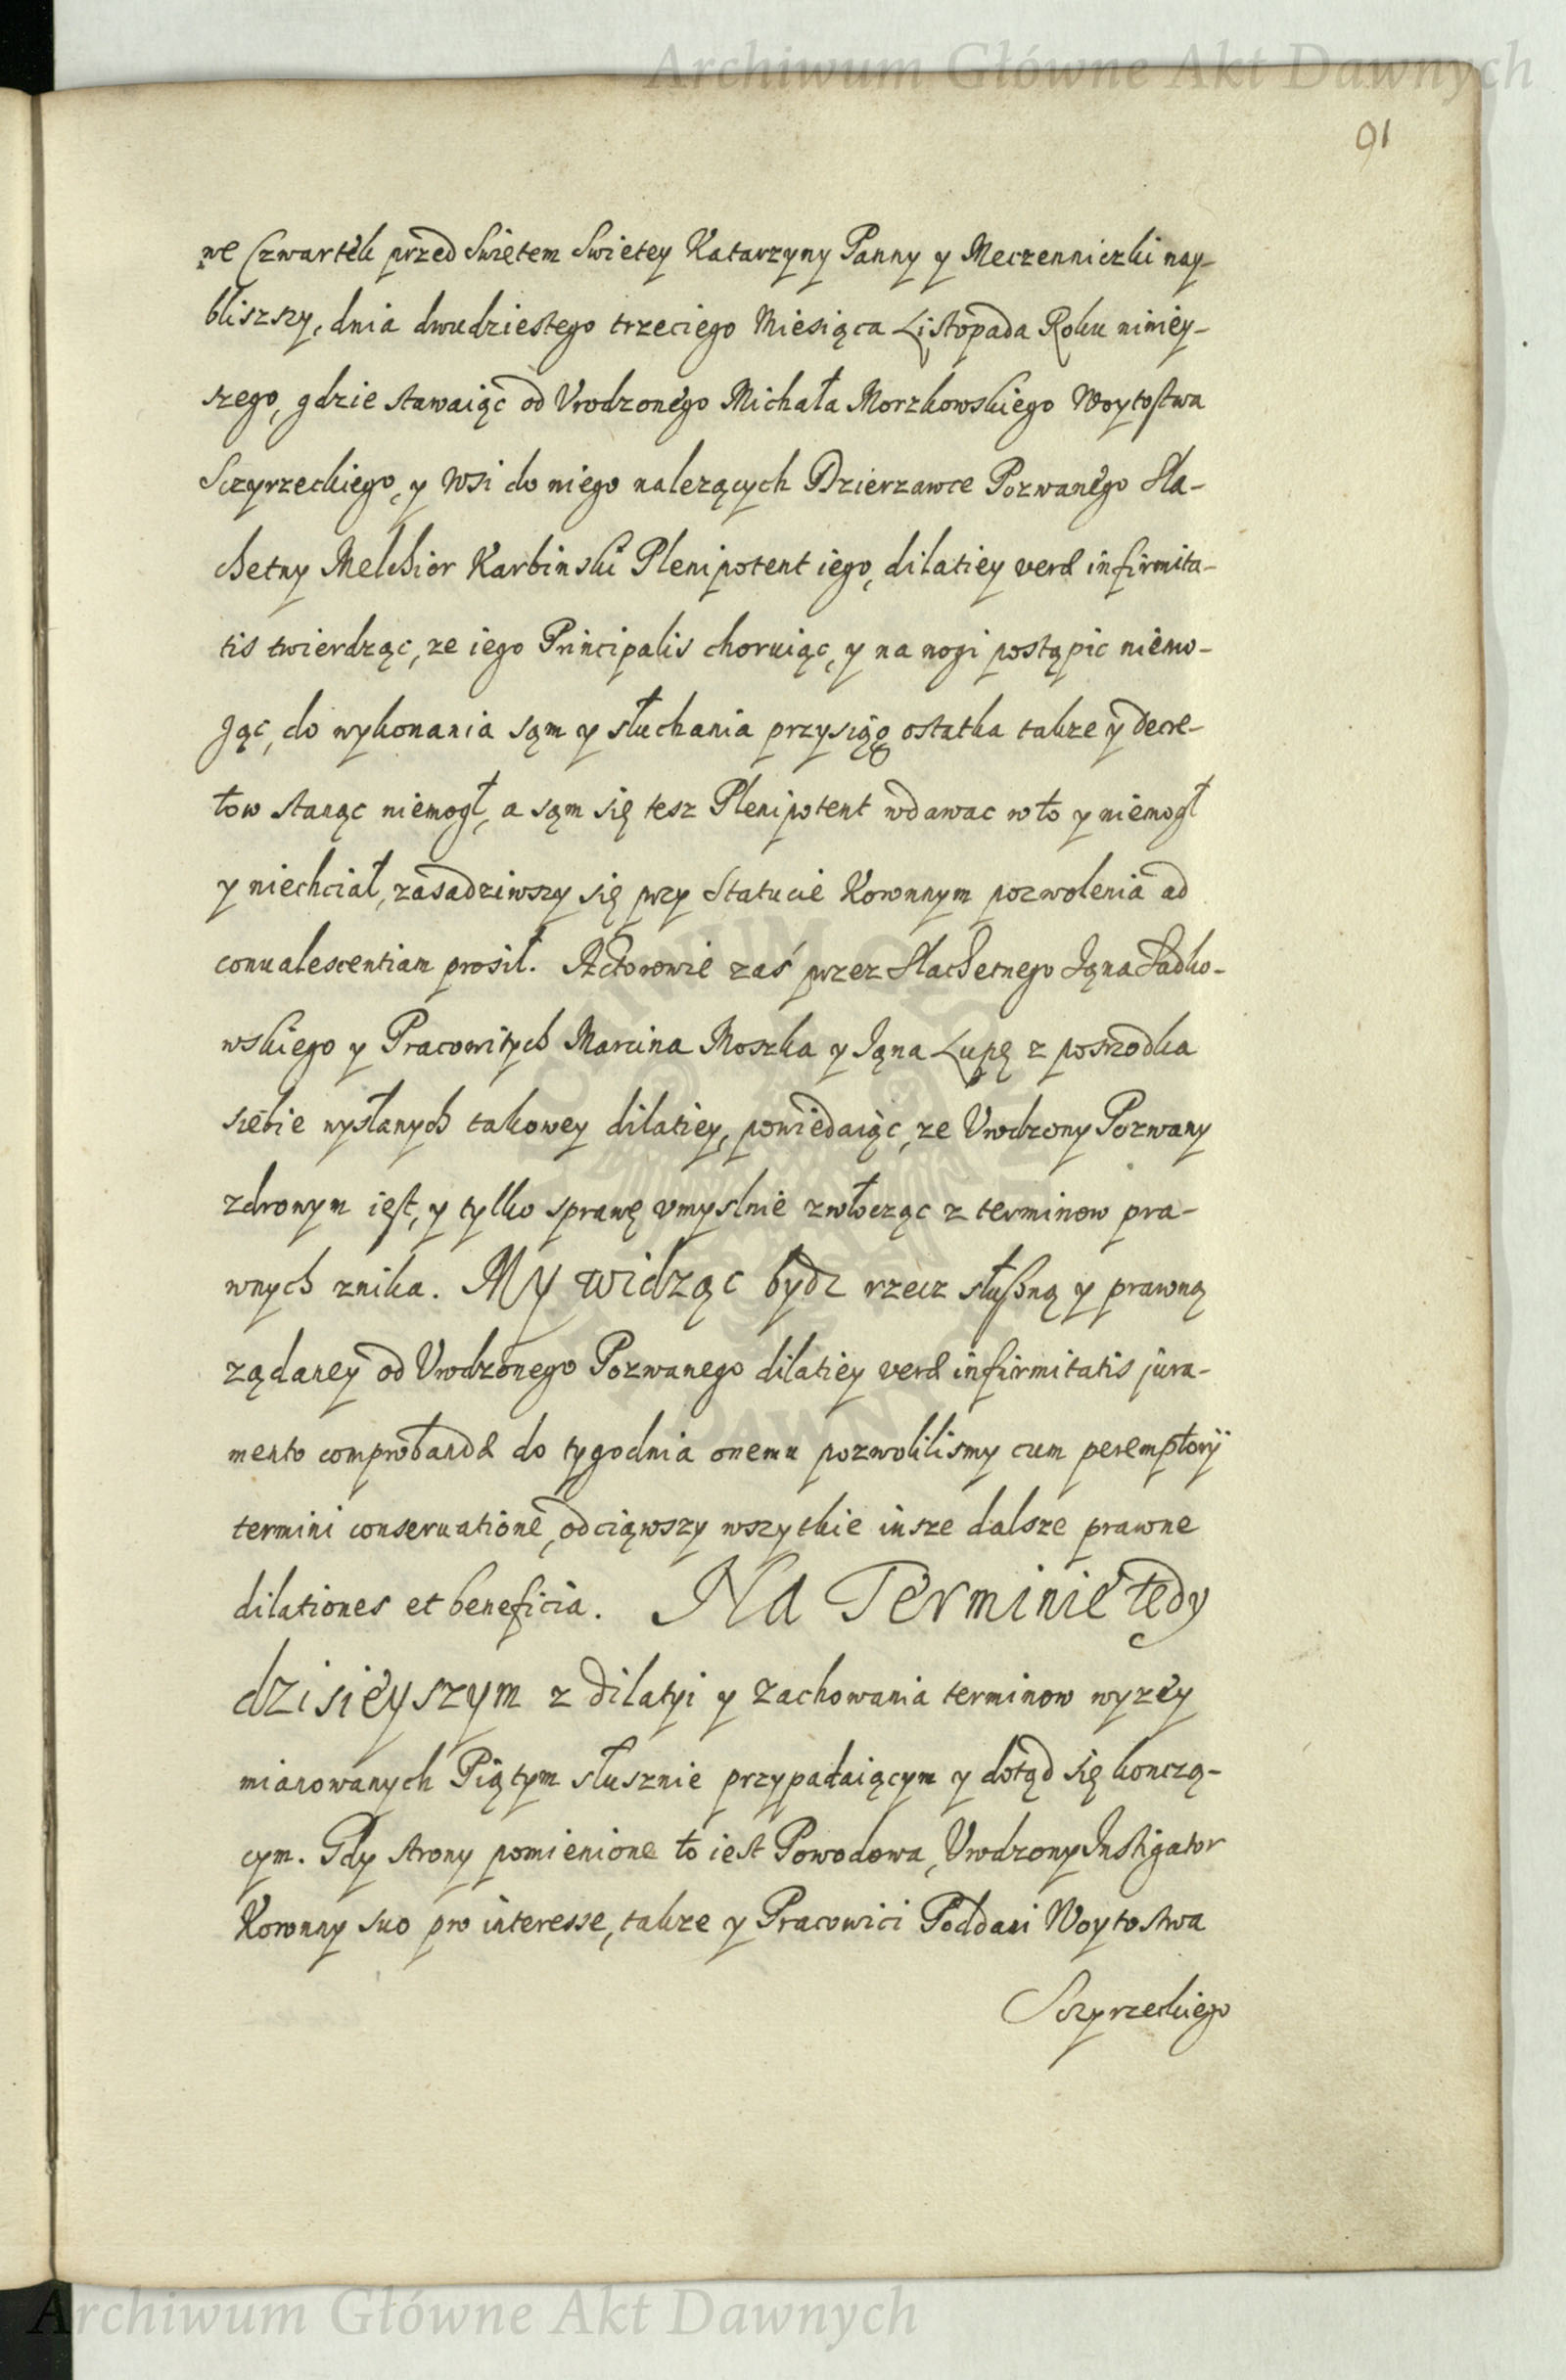 Archiwum Główne Akt Dawnych
91
we Czwartek przed Swiętem Swietey Katarzyny Panny y Meczenniczki nay-
bliszszy, dnia dwudziestego trzeciego Miesiąca Listopada Roku niniey-
szego, gdzie stawaiąc od Vrodzonego Michała Morzkowskiego Woytostwa
Sczyrzeckiego, y Wsi do niego nalezących Dzierzawce Pozwanego Sla-
chetny Melchior Karbinski Plenipotent iego, dilatiey veræ infirmita-
tis twierdząc, ze iego Principalis choruiąc, y na nogi postąpic niemo-
gąc, do wykonania sąm y słuchania przysiąg ostatka takze y decre-
tow stanąc niemogł, a sąm się tesz Plenipotent wdawac w to y niemogł
y niechciał, zasadziwszy się przy Statucie Koronnym pozwolenia ad
conualescentiam prosił. Actorowie zaś przez Slachetnego Iąna Sadko-
wskiego y Pracowitych Marcina Moszka y Iąna Lupę z posrzodka
siebie wysłanych takowey dilatiey, powiedaiąc, ze Vrodzony Pozwany
zdrowym iest, y tylko sprawę vmyslnie zwłocząc z terminow pra-
wnych znika. My widząc bydz rzecz słuszną y prawną
ządaney od Vrodzonego Pozwanego dilatiey veræ infirmitatis jura-
mento comprobandæ do tygodnia onemu pozwolilismy cum peremptorÿ
termini conseruatione, odciąwszy wszytkie insze dalsze prawne
dilationes et beneficia. Na Terminie tedy
dzisieyszym z dilatyi y zachowania terminow wyzey
mianowanych Piątym słusznie przypadaiącym y dotąd się konczą-
cym. Gdy strony pomienione to iest Powodowa, Vrodzony Instigator
Koronny suo pro interesse, takze y Pracowici Poddani Woytostwa
Sczyrzeckiego
Archiwum Główne Akt Dawnych